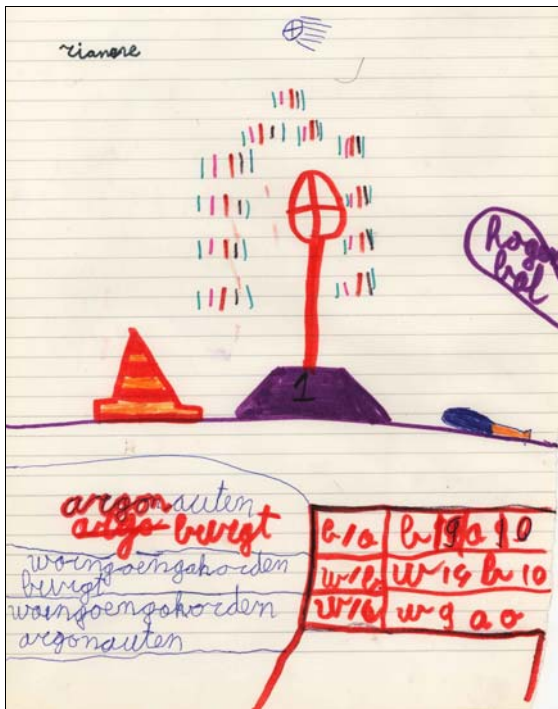 rianne
Hogan
bal
1
argonauten
argo burgt
waingoengahorden
burgt
waingoengahorden
argonauten
b/a b 9 a 10
w/b w 14 b 10
w/a w 9 a 0